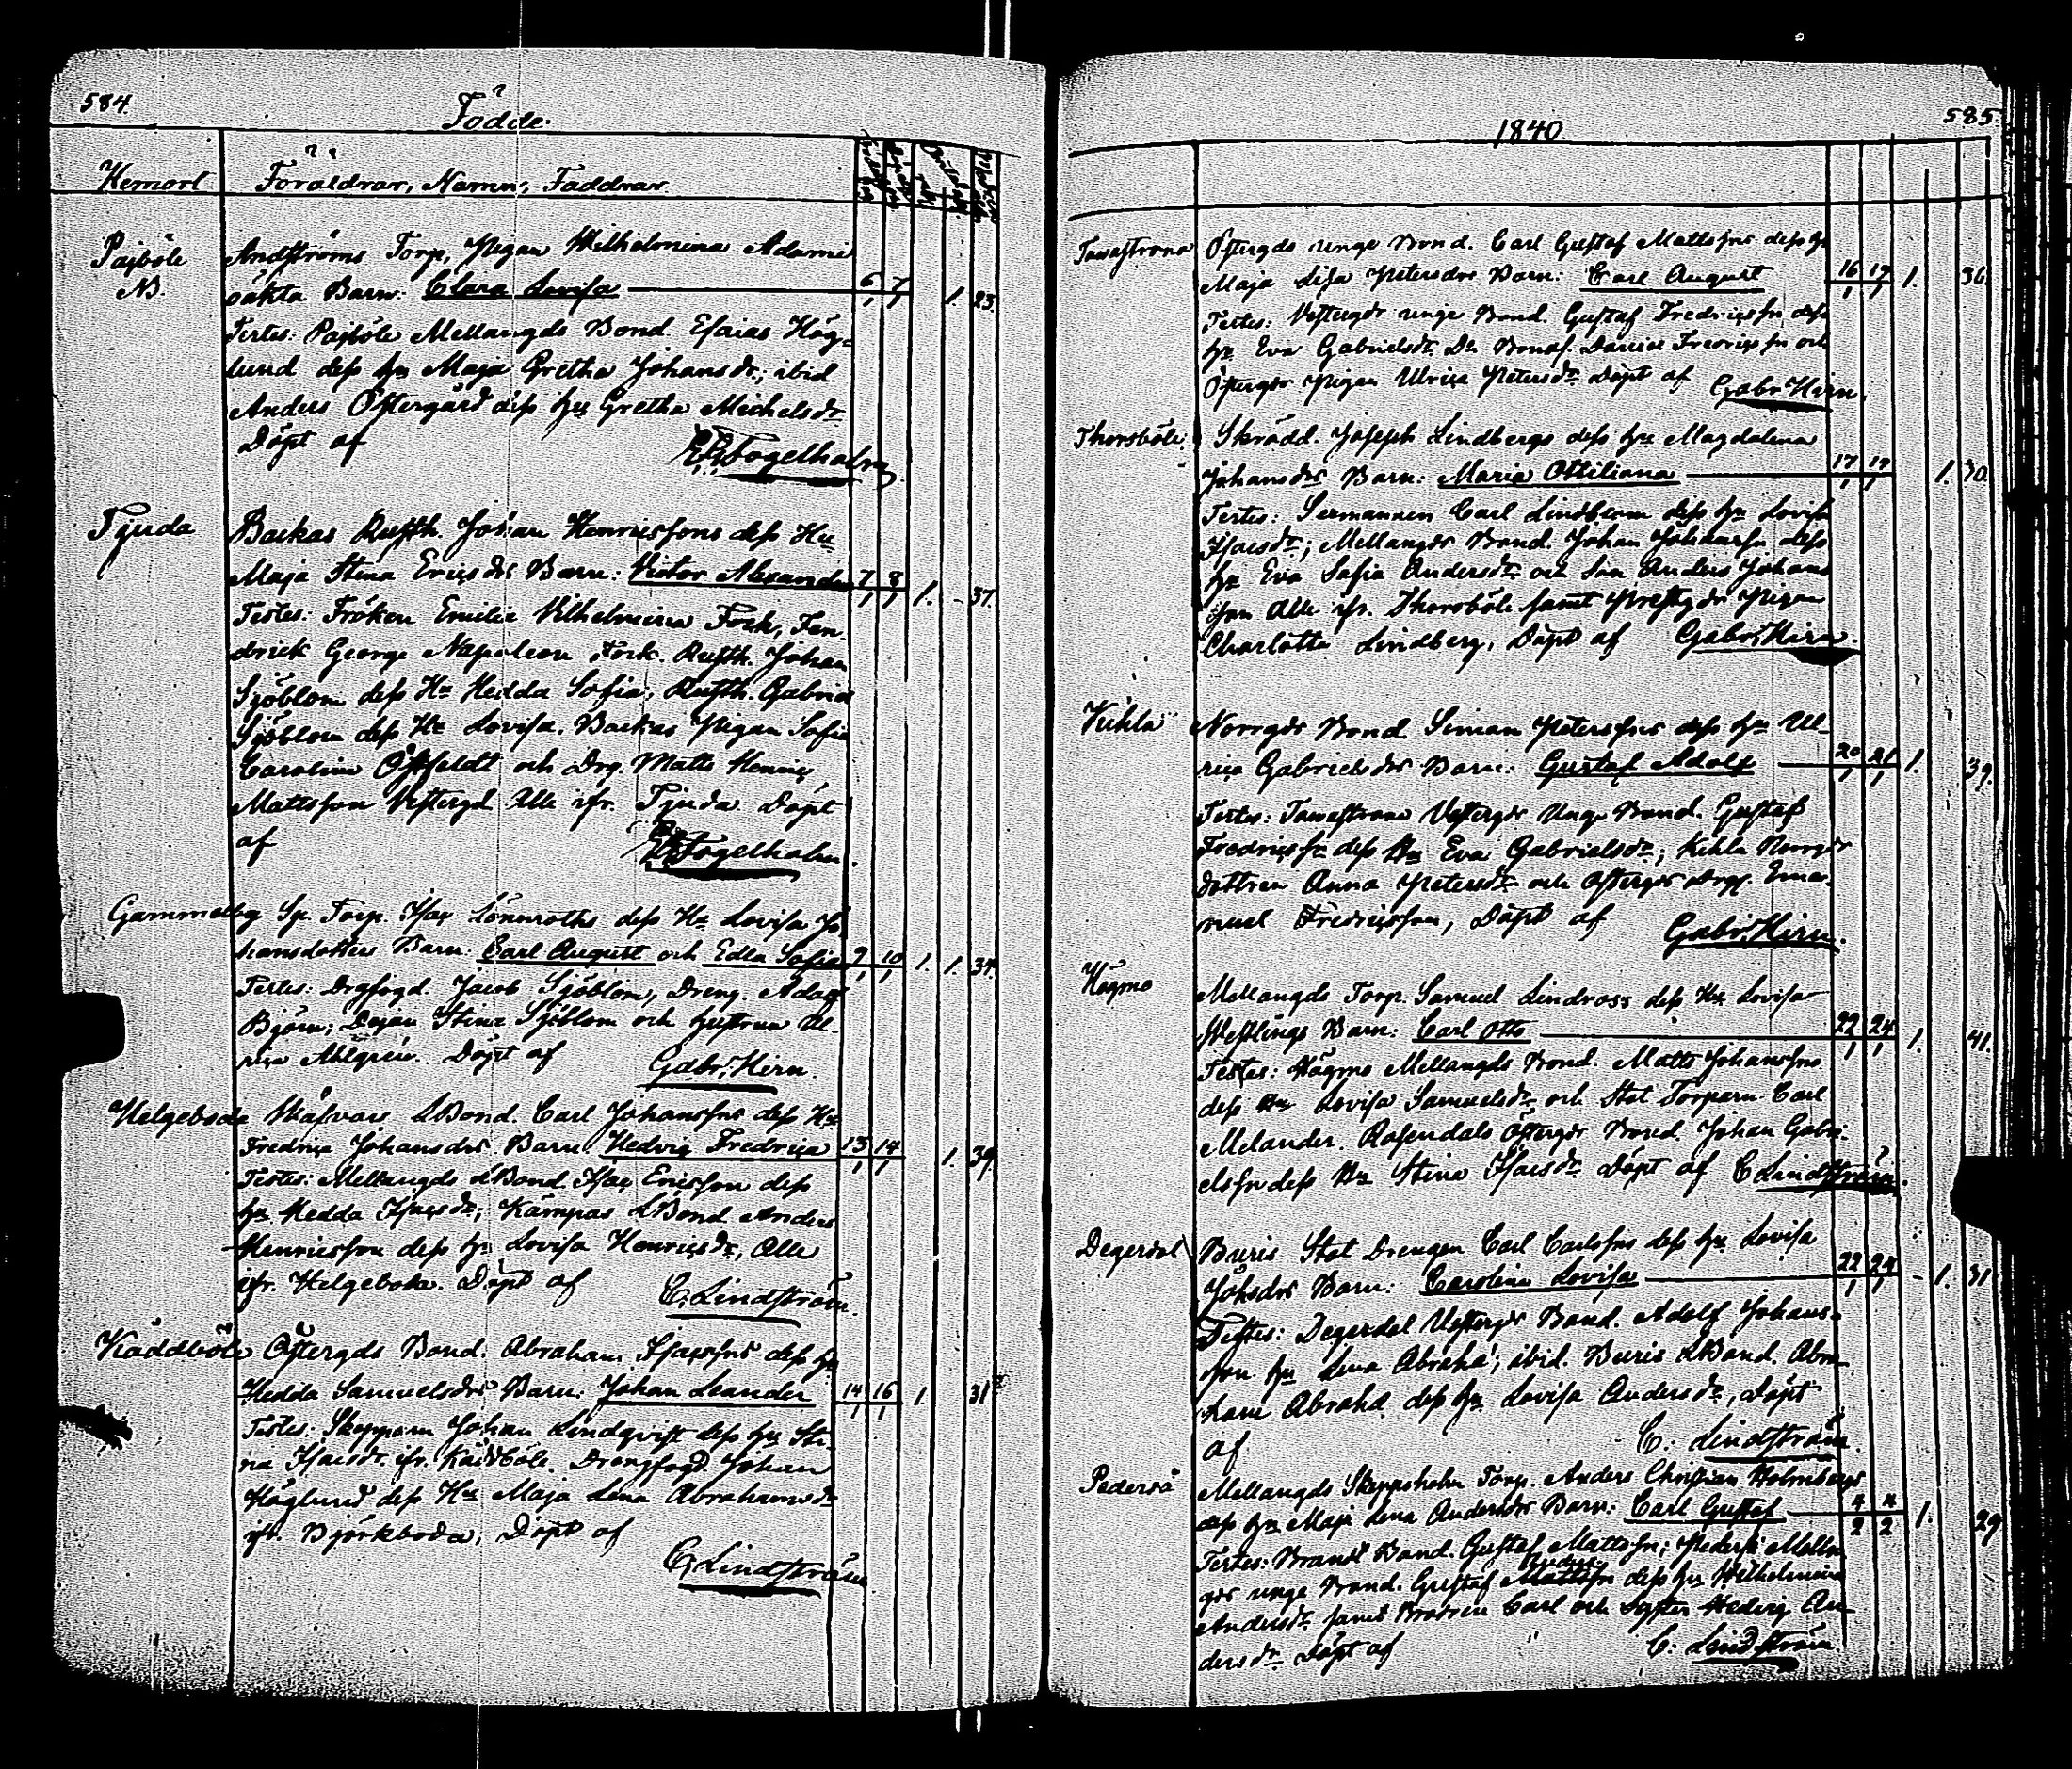 584.
Födde.
Hemort Föräldrar, Namn, Faddrar
Pajböle Andströms Torp, Pigan Wilhelmina Adami
N. oäkta Barn: Clara Lovisa 6/1 7/1 1. 23.
Testes: Pajböle Mellangds Bond. Esaias Hög-
lund dess hu Maja Gretha Johansdr; ibid.
Anders Östergård dess hu Gretha Michelsdr
Döpt af Fogelholm
Tjuda Backas Rusth. Johan Henricssons dess Hu
Maja Stina Ericsdrs Barn: Victor Alexander 7/1 8/1 1. - 37.
Testes: Fröken Emilie Vilhelmina Fock, Fen-
drick George Napoleon Fock. Rusth. Johan
Sjöblom dess Hu Hedda Sofia, Rusth. Gabriel
Sjöblom dess Hu Lovisa. Backas Pigan Sofia
Carolina och Drg. Matts Henric
Mattsson Vestergd Alle ifr. Tjuda Döpt
af Fogelholm.
Gammelby Torp. Isac Lönnroths dess Hu Lovisa Jo
hansdotters Barn. Carl August och Edla Sofia 9/1 10/1 1. 1. 34.
Testes: Drgfogd Jacob Sjöblom, Dreng. Adolf
Björn; Stina Sjöblom och hustrun Ul-
rica Ahlgren. Döpt af Gabr. Hirn.
Helgeboda LBond. Carl Johanssns dess Hu
Fredrica Johansdrs Barn. Hedvig Fredrica 13/1 14/1 1. 39.
Testes: Mellangds LBond Isac Ericsson dess
hu Hedda Isacsdr; Kämpas LBond Anders
Henricsson dess hu Lovisa Henricsdr, Alle
ifr. Helgeboda. Döpt af C. Lindström.
Käddböle Östergds Bond. Abraham Isacssns dess hu
Hedda Samuelsdrs Barn: Johan Leander 14/1 16/1 1. 31
Testes: Skepparn Johan Lindqvist dess hu Sti-
na Isacsdr. ifr. Käddböle. Drengfogd. Johan
Höglund dess Hu Maja Lena Abrahamsdr
ifr. Björkboda, Döpt af
C. Lindström
1840. 585
Tavastrona Östergds unge Bond. Carl Gustaf Mattssns dess hu
Maja Lisa Petersdrs Barn: Carl August 16/1 17/1 1. 36.
Testes: Vestergds unge Bond. Gustaf Fredricssn dess
hu Eva Gabrielsdr. Do Bonds. Daniel Fredricssn och
Östergds Pigan Ulrica Petersdr Döpt af Gabr. Hirn.
Thorsböle Skrädd. Joseph Lindbergs dess hu Magdalena
Johansdrs Barn: Maria Ottiliana 17/1 19/1 1. 30.
Testes: Sexmannen Carl Lindblom dess hu Lovisa
Isacsdr; Mellangds Bond. Johan Johanssn dess
hu Eva Sofia Andersdr och Son Anders Johans
son Alle ifr. Thorsböle samt Prestgds Pigan
Charlotta Lindberg, Döpt af Gabr. Hirn.
Kihla Norrgds Bond Simon Peterssns dess hu Ul-
rica Gabrielsdrs Barn: Gustaf Adolf 20/1 21/1 1. 39.
Testes: Tavastrona Vestergds Unge Bond. Gustaf
Fredricssn dess Hu Eva Gabrielsdr; Kihla Norrgds
dottren Anna Petersdr och Östergds Drg. Ema-
nuel Fredricsson, Döpt af Gabr. Hirn.
Högmo Mellangds Torp. Samuel Lindross dess Hu Lovisa
Westlings Barn: Carl Otto 22/1 24/1 1. 41.
Testes: Högmo Mellangds Bond. Matts Johanssns
dess Hu Lovisa Samuelsdr och Stat Torparn Carl
Melander. Rosendals Östergds Bond. Johan Gabri-
elssn dess Hu Stina Isacsdr Döpt af C Lindström.
Degerdal Buris Stat Drengen Carl Carlssns dess hu Lovisa
Johsdrs Barn: Carolina Lovisa 22/1 24/1 - 1. 31
Testes: Degerdal Vestergds Bond. Adolf Johans-
son hu Lena Abrahd; ibid. Buris LBond. Abra-
ham Abrahd. dess hu Lovisa Andersdr, Döpt
af C. Lindström.
Pederså Mellangds Skeppsholm Torp. Anders Christian Holmbergs
dess hu Maja Lena Andersdrs Barn: Carl Gustaf 4/2 11/2 1. 29
Testes: Bond. Gustaf Mattssn; Pederså Mellan
gds unge Bond. Gustaf Anders dess hu Wilhelmina
Andersdr. samt Brodren Carl och Syster Hedvig An-
dersdr Döpt af C. Lindström.